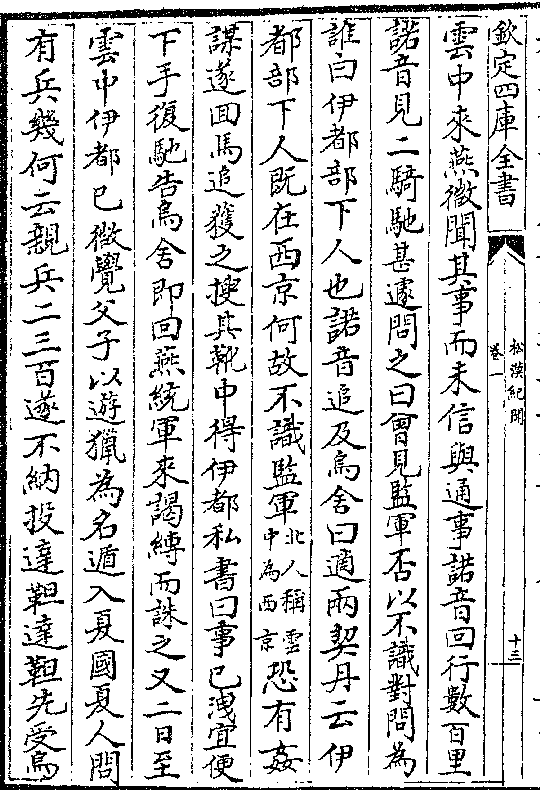 欽定四庫全書
松漠紀聞
卷一
十三
雲中來燕微聞其事而未信與通事諾音回行數百里
諾音見二騎馳甚遽問之曰曾見監軍否以不識對問為
誰曰伊都部下人也諾音追及烏舍曰適兩契丹云伊
都部下人既在西京何故不識監軍北人稱雲中為西京恐有姦
謀遂回馬追獲之搜其靴中得伊都私書曰事已洩宜便
下手復馳告烏舍即回燕統軍來謁縛而誅之又二日至
雲中伊都已微覺父子以遊獵為名遁入夏國夏人問
有兵幾何云親兵二三百遂不納投達靼達靼先受烏